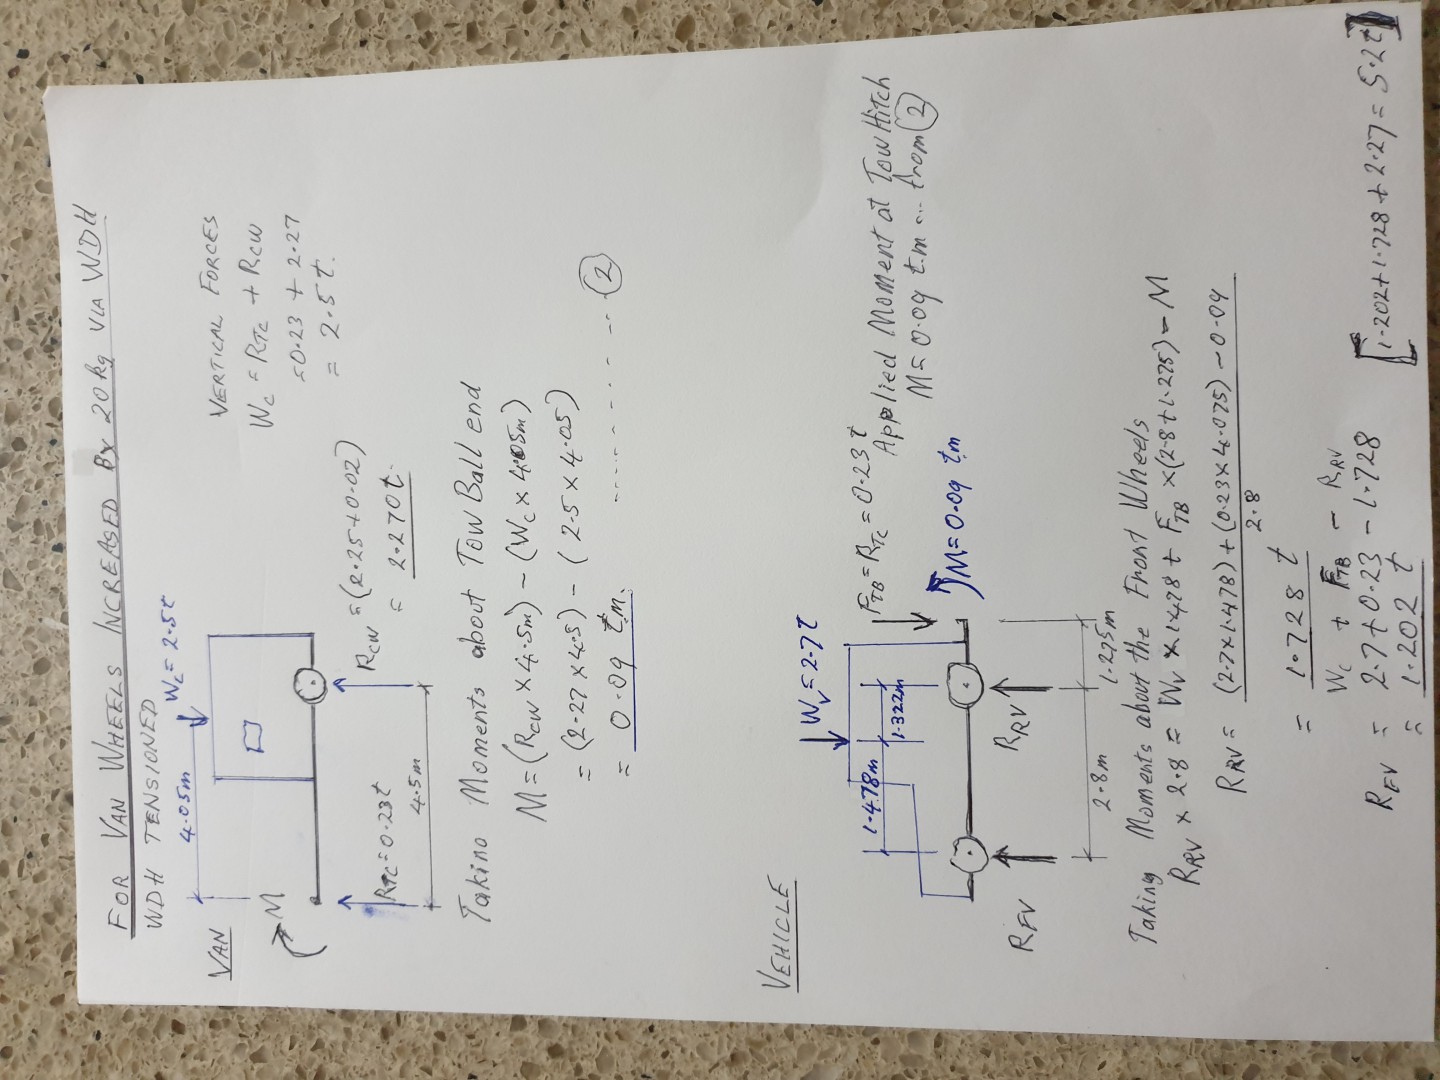 FOR VAN WHEELS INCREASED BY 20kg VIA WDH
WDH TENSIONED
VAN
4.05m
Wc = 2.5t
M
RTC = 0.23t
4.5m
RCW = (2.25+0.02)
= 2.270t.
VERTICAL FORCES
Wc = RTC + RCW
= 0.23 + 2.27
= 2.5t.
Taking Moments about Tow Ball end
M = (RCW x 4.5m) - (Wc x 4.05m)
= (2.27 x 4.5) - (2.5 x 4.05)
= 0.09 t.m. ............ (2)
VEHICLE
Wv = 2.7t
1.478m
1.322m
FTB = RTC = 0.23t
M = 0.09 t.m
Applied Moment at Tow Hitch
M = 0.09 t.m ... from (2)
RFV
RRV
2.8m
1.275m
Taking Moments about the Front Wheels
RRV x 2.8 = Wv x 1.478 + FTB x (2.8+1.275) - M
RRV = (2.7x1.478) + (0.23x4.075) - 0.09
2.8
= 1.728 t
Wc + FTB - RRV
RFV = 2.7 + 0.23 - 1.728
= 1.202 t
[1.202 + 1.728 + 2.27 = 5.2t]